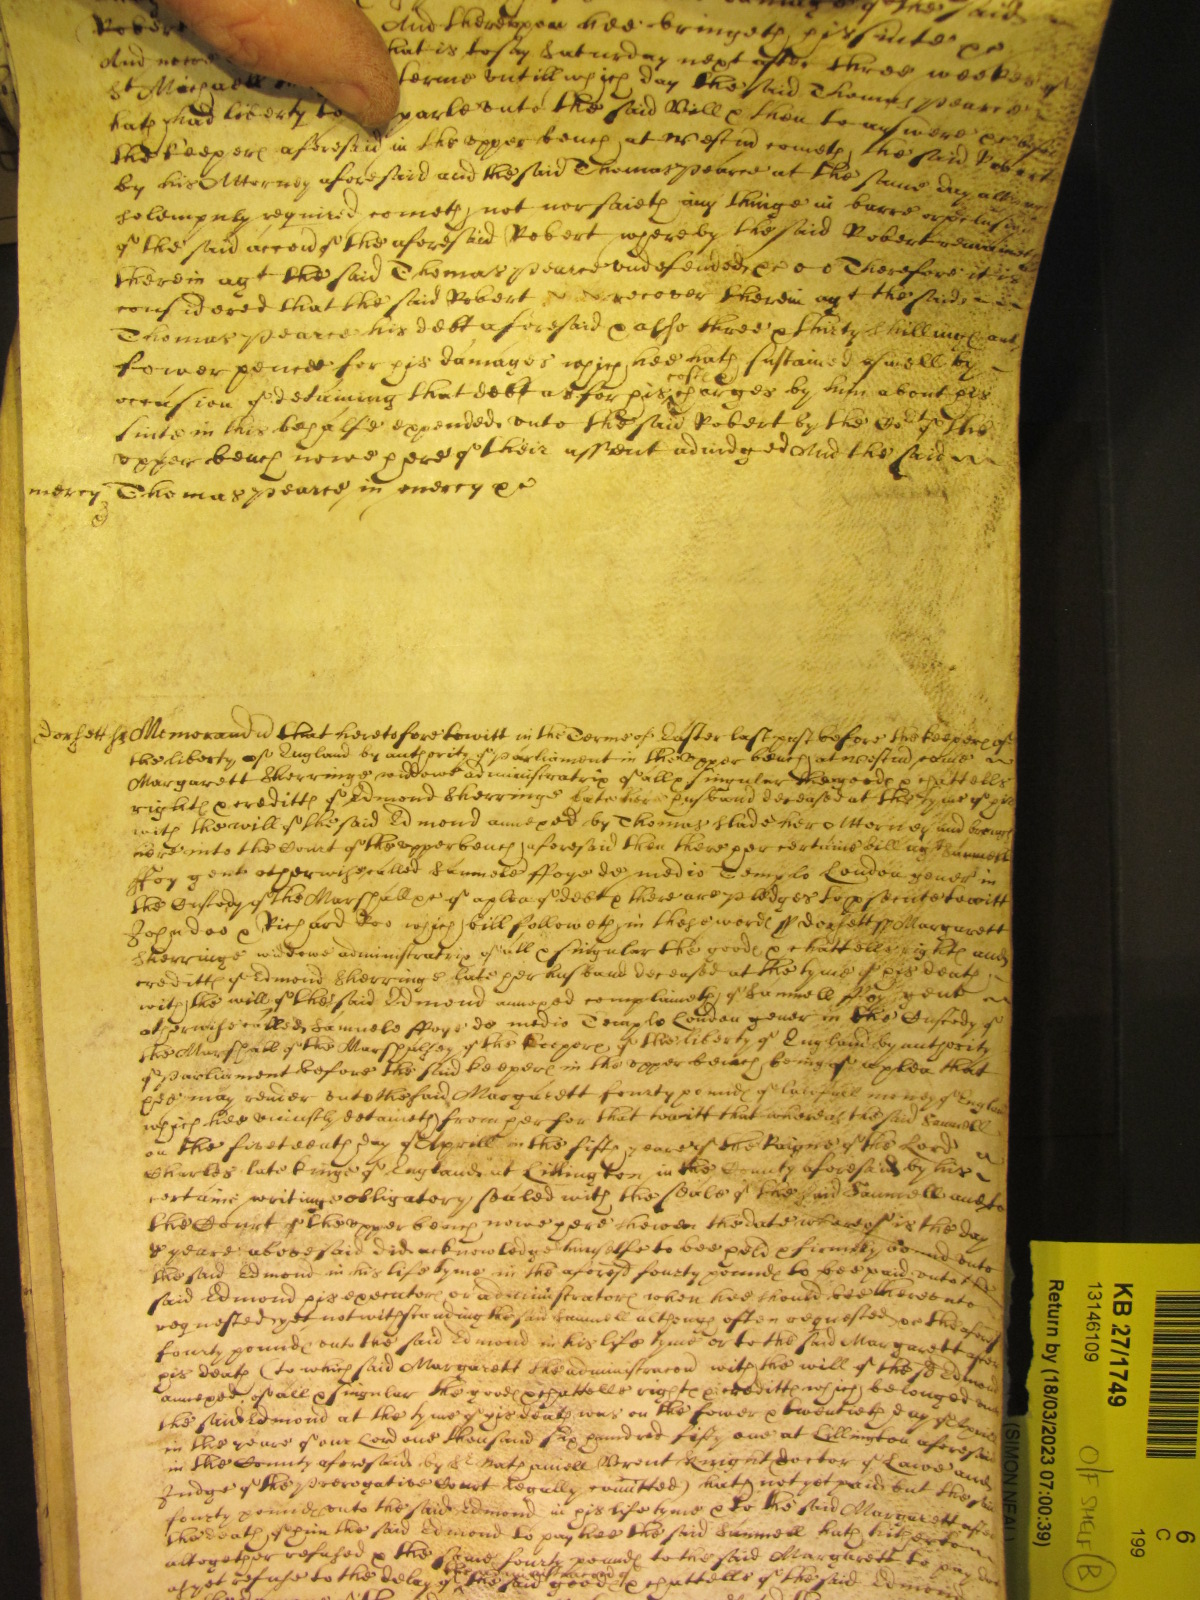 damage of the said
Robert And thereupon hee bringeth his suite &c
And nowe hat is to say Saturday next after three weekes of
St Michaell terme untill which day the said Thomas Pearce
hath had liberty to parle unto the said Bill & then to answere &c before
the keeperes aforesaid in the upper bench at Westm cometh the said Robert
by his Attorney aforesaid and the said Thomas Pearce at the same day although
solempnly required cometh not nor saieth any thinge in barre or preclusion
of the said accon of the aforesaid Robert whereby the said Robert remaineth
therein agt the said Thomas Pearce undefended &c Therefore it is
considered that the said Robert recover therein agt the said
Thomas Pearce his debt aforesaid & also three & thirty shillinges and
fower pence for his damages which hee hath sustained aswell by
occasion of detaining that debt as for his costes & charges by him about his
suite in this behalfe expended unto the said Robert by the Court of the
upper bench nowe here of their assent adiudged And the said
mercy Thomas Pearce in mercy &c
Dorsett ss Memorand that heretofore towitt in the Terme of Easter last past before the keeperes of
the liberty of England by authority of Parliament in the upper bench at Westm came
Margarett Sherringe widdowe administratrix of all & singular the goodes & chattells
rightes & creditts of Edmond Sherringe late her husband deceased at the tyme of his
with the will of the said Edmond annexed by Thomas Slade her Attorney and brought
here into the Court of the upper bench aforesaid then there her certaine bill agt Samuell
ffoy gent otherwise called Samuele ffoye de medio Templo London gener in
the Custody of the Marshall &c of a plea of debt & there are pledges to prosecute towitt
John doo & Richard Roo which bill followeth in these wordes ss Dorsett ss Margarett
Sherringe widowe administratrix of all & singular the goodes & chattells rightes and
creditts of Edmond Sherringe late her husband deceased at the tyme of his death
with the will of the said Edmond annexed complaineth of Samuell ffoy gent
otherwise called Samuele ffoye de medio Templo London gener in the Custody of
the Marshall of the Marshalsey of the keeperes of the liberty of England by authority
of Parliament before the said keeperes in the upper bench being of a plea that
hee may render unto the said Margarett fourty poundes of lawfull money of England
which hee uniustly detaineth from her for that towitt that whereas the said Samuell
on the fifteenth day of Aprill in the fifth yeare of the Raigne of the Lord
Charles late kinge of England at Lillington in the County aforesaid by his
certaine writinge obligatory sealed with the seale of the said Samuell and to
the Court of the upper bench nowe here shewen the date whereof is the day
& yeare abovesaid did acknowledge himselfe to bee held & firmely bound unto
the said Edmond in his life tyme in the aforesd fourty poundes to bee paid unto the
said Edmond his executores or administratores when hee should bee thereunto
requested yet notwithstanding the said Samuell although often requested &c the aforesd
fourty poundes unto the said Edmond in his life tyme or to the said Margarett after
his death (to which said Margarett the administracon with the will of the sd Edmond
annexed of all & singular the goodes & chattells rightes & creditts which belonged unto
the said Edmond at the tyme of his death was on the fower & twentieth day of
in the yeare of our Lord one thousand six hundred fifty one at Lillington aforesaid
in the County aforesaid by Sr Nathaniell Brent knight doctor of Lawe and
Judge of the Prerogative Court legally comitted) hath not yet paid but the said
fourty poundes unto the said Edmond in his life tyme & to the said Margarett after
the death of him the said Edmond to pay hee the said Samuell hath hitherto
altogether refused & the same fourty poundes to the said Margarett to pay doth
as yet refuse to the delay of the administracon of the said goodes & chattells of the said Edmond
KB 27/1749
13146109
Return by (18/03/2023 07:00:39)
(SIMON NEAL)
O/F SHELF B
6
C
199